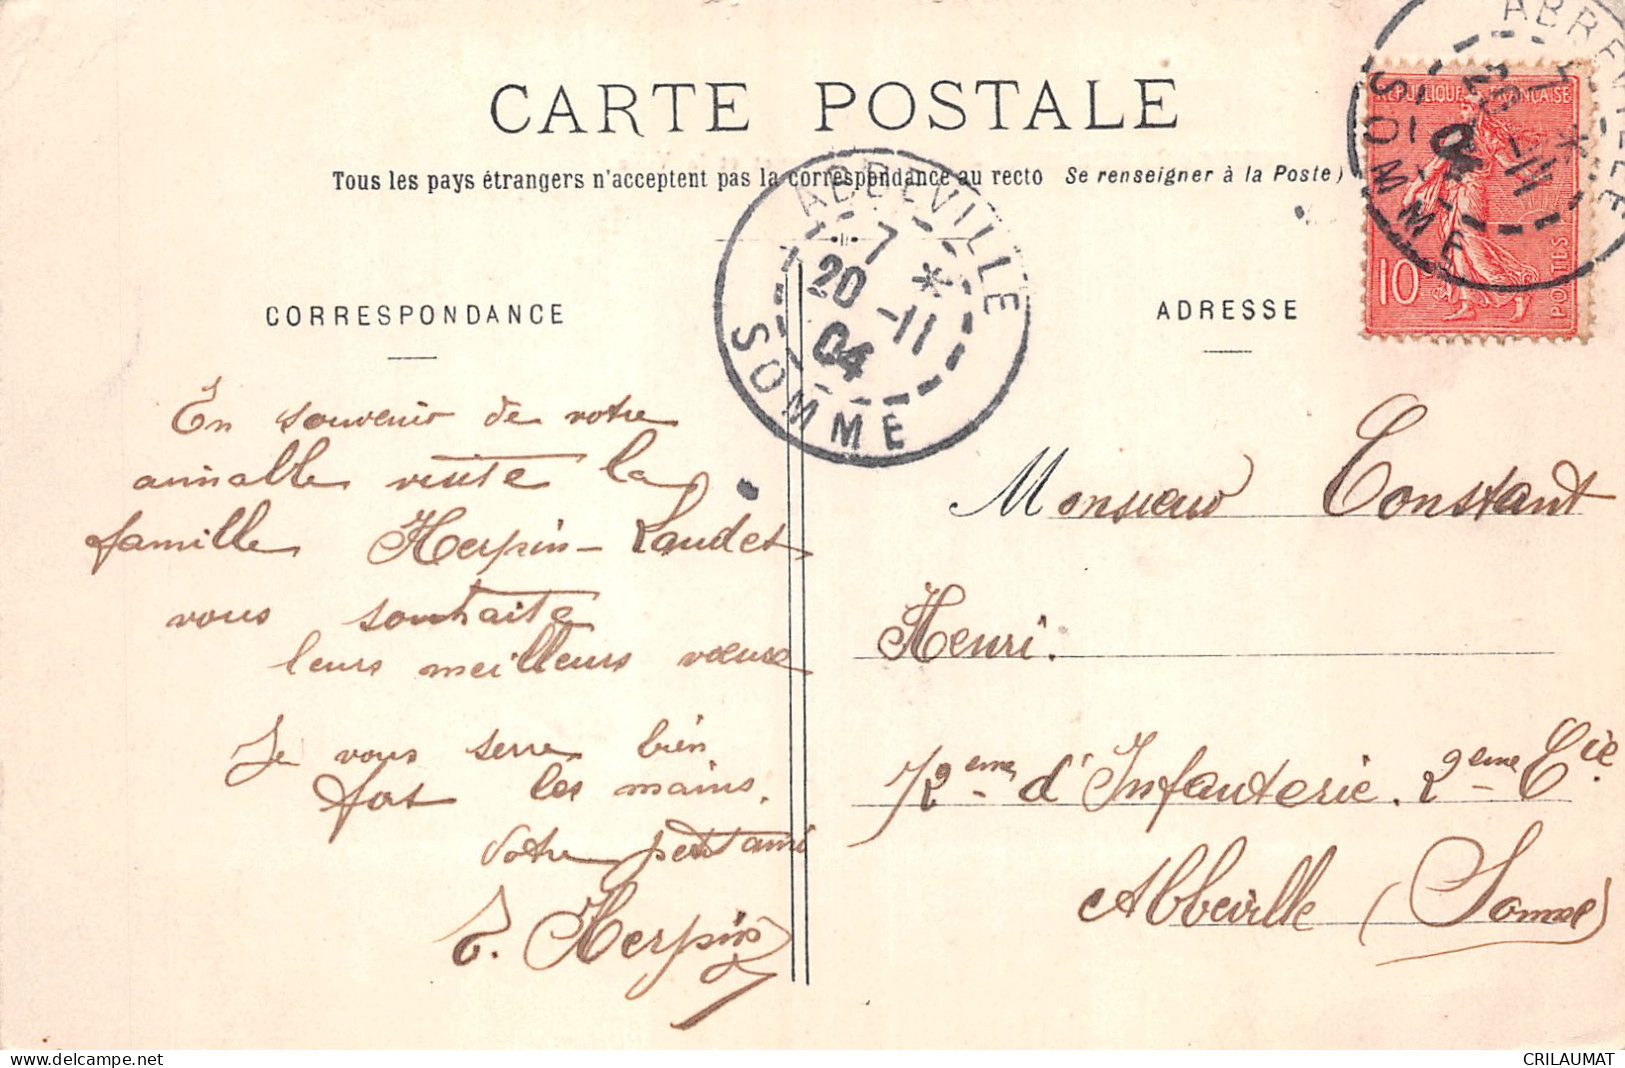 CARTE POSTALE
Tous les pays étrangers n'acceptent pas la correspondance au recto Se renseigner à la Poste)
RÉPUBLIQUE FRANÇAISE
10
POSTES
ABBEVILLE
7
20 -11
04
SOMME
ABBEVILLE
7
20 -11
04
SOMME
CORRESPONDANCE
En souvenir de votre
aimable visite la
famille Herpin-Laudet
vous souhaite
leurs meilleurs vœux
Je vous serre bien
fort les mains.
Votre petit ami
Herpin
ADRESSE
Monsieur Constant
Henri.
72eme d'Infanterie. 2eme Cie
Abbeville (Somme)
delcampe.net
CRILAUMAT